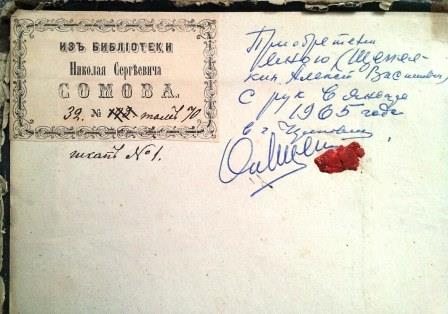 ИЗЪ БИБЛІОТЕКИ
Николая Сергѣевича
СОМОВА.
39. № 122 толъ 70
шкапъ № 1.
Приобретена
мною (
Алексей Васильевич)
с рук в январе
1965 года
в г.